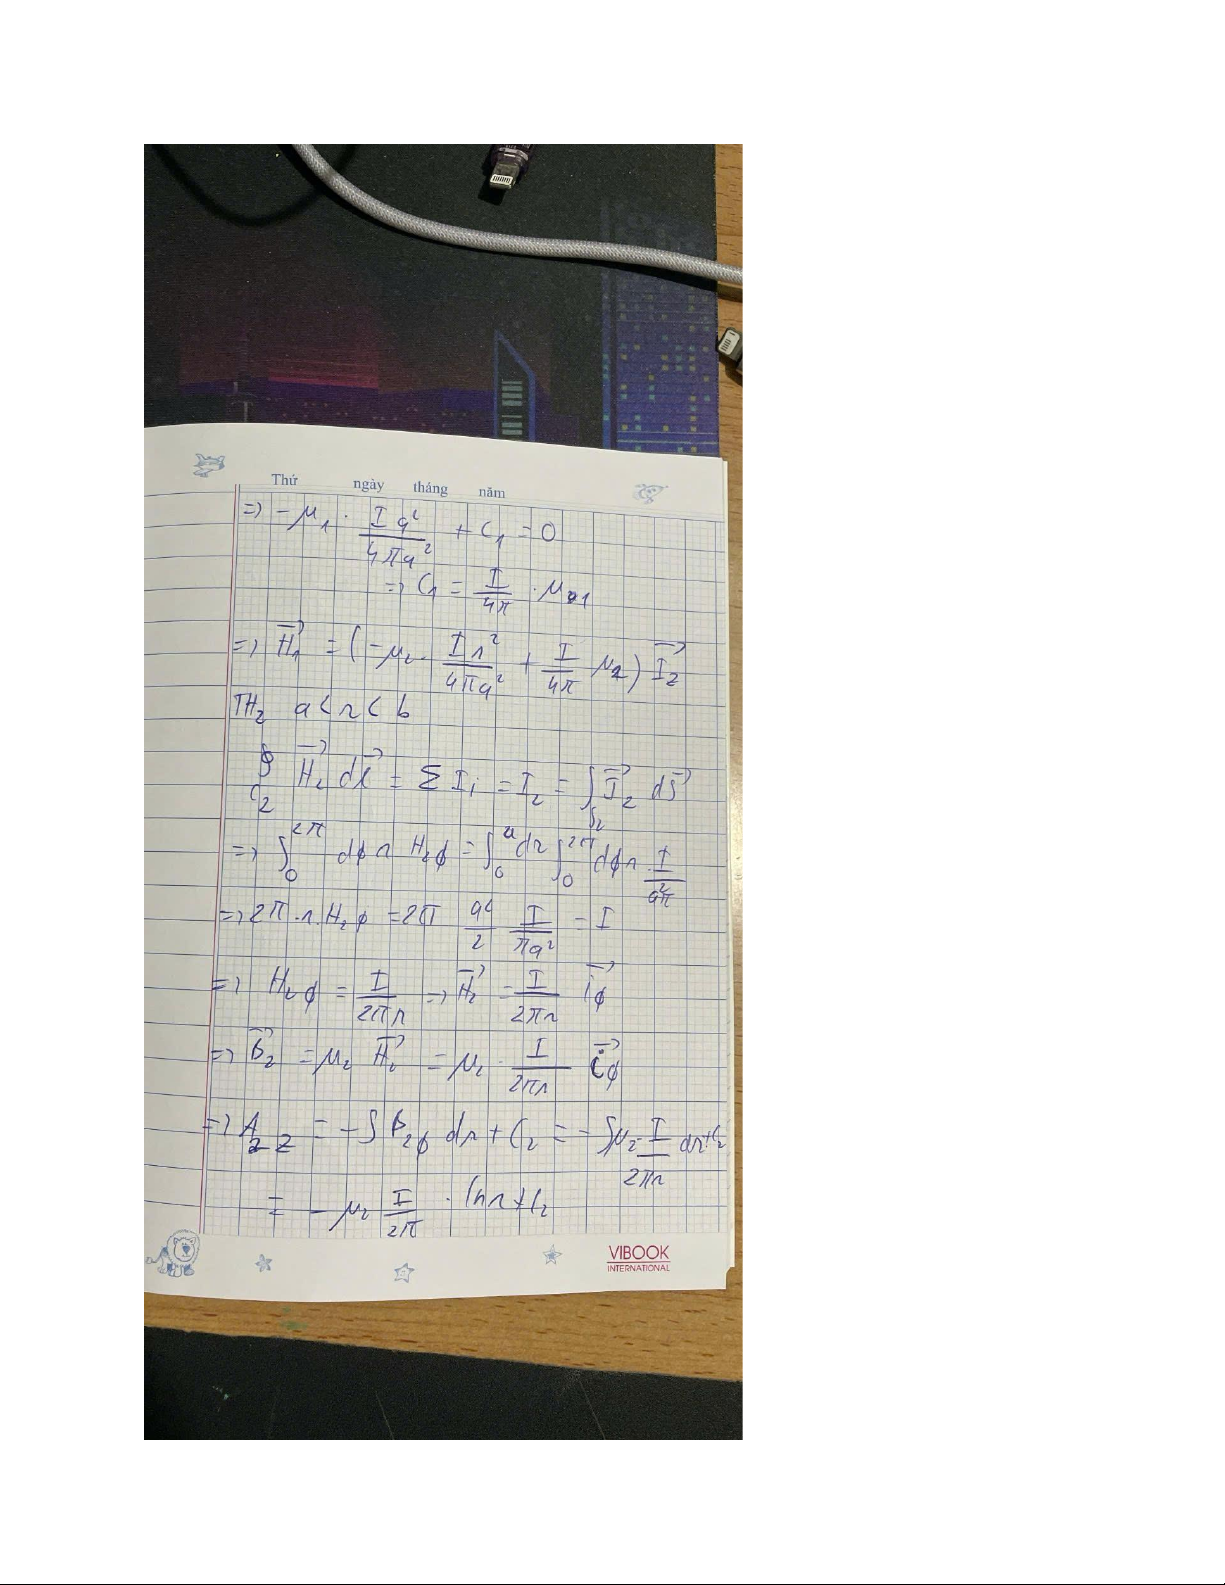 Thứ ngày tháng năm
=> -μ₁ · I a² / 4πa² + C₁ = 0
=> C₁ = I / 4π · μ₁
=> H₁⃗ = (-μ₂ · I r² / 4πa² + I / 4π μ₂) I₂⃗
TH₂ a < r < b
∮_C₂ H₂⃗ dl⃗ = Σ Iᵢ = I₂ = ∫_S₂ J₂⃗ dS⃗
=> ∫₀^2π dφ r H₂φ = ∫₀^a dr ∫₀^2π dφ r I / a²π
=> 2π . r . H₂φ = 2π a² / 2 I / πa² = I
=> H₂φ = I / 2πr => H₂⃗ = I / 2πr i⃗φ
=> B₂⃗ = μ₂ H₂⃗ = μ₂ · I / 2πr i⃗φ
=> A₂z = -∫ B₂φ dr + C₂ = -∫ μ₂ I / 2πr dr + C₂
= - μ₂ I / 2π · ln r + C₂
VIBOOK
INTERNATIONAL